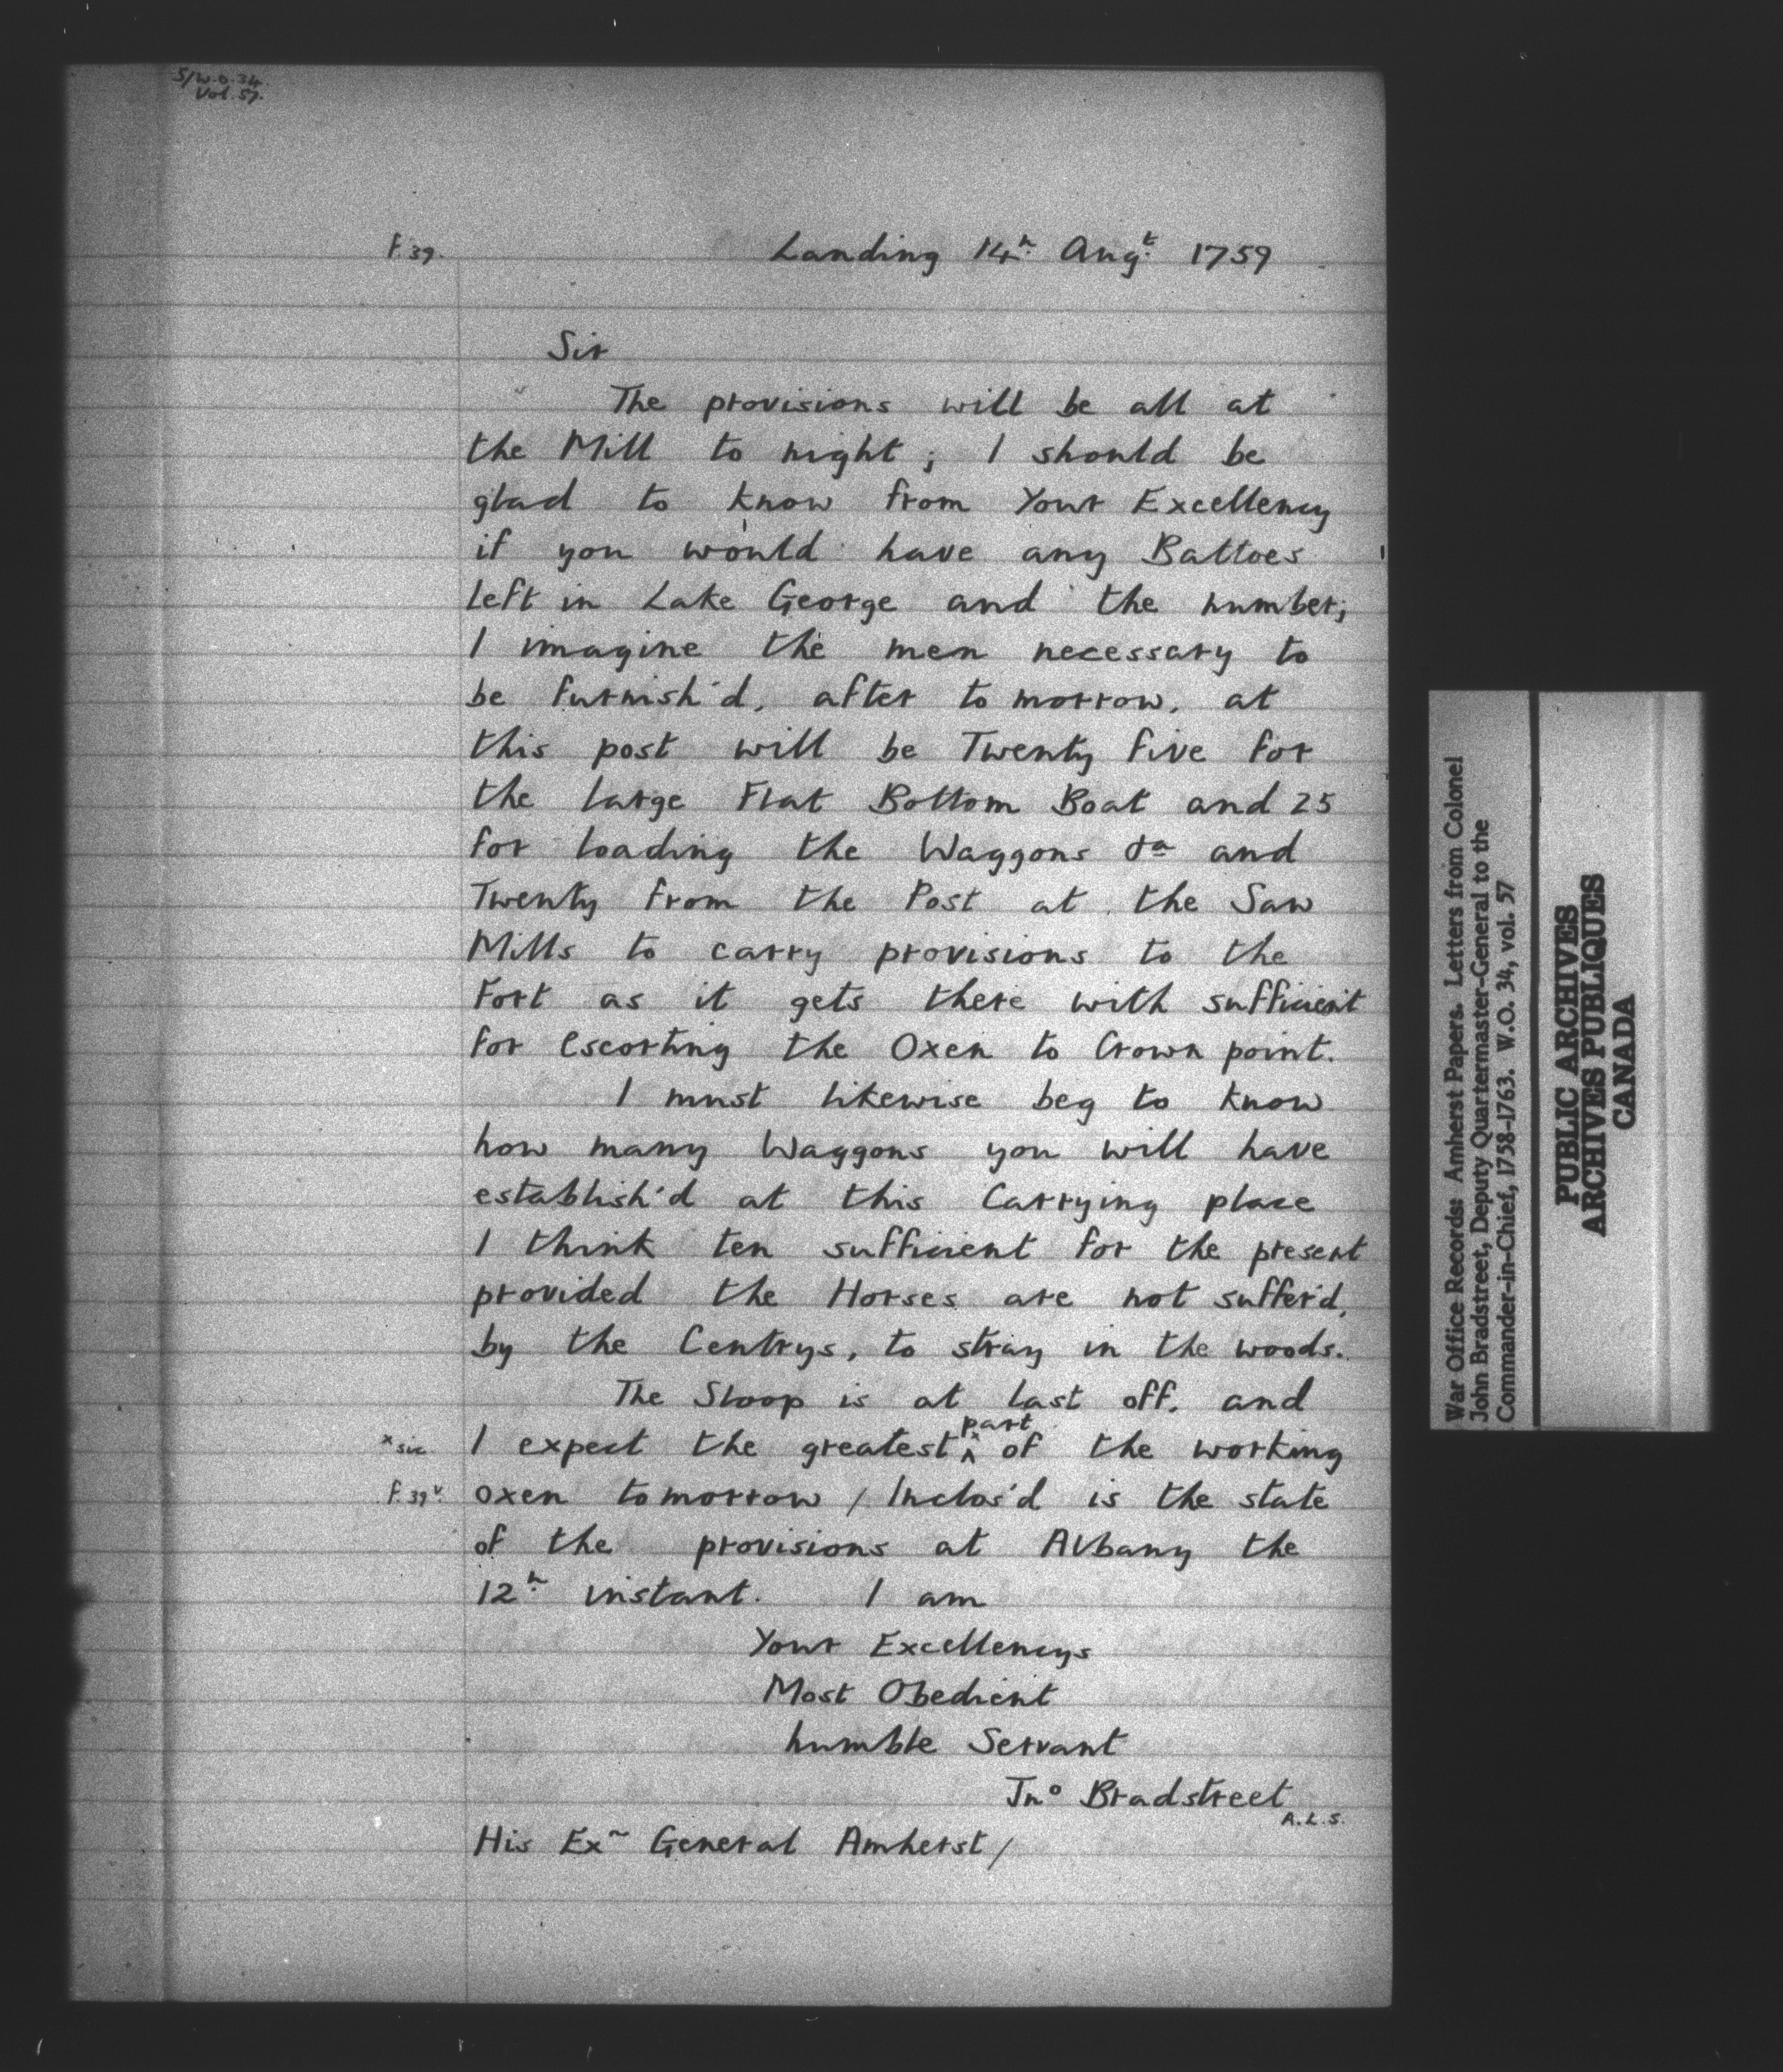 S/W.O.34.
Vol. 57.
f.39.
Landing 14h. Augt. 1759
Sir
The provisions will be all at
the Mill to night; I should be
glad to know from Your Excellency
if you would have any Battoes
left in Lake George and the number;
I imagine the men necessary to
be furnish'd, after to morrow, at
this post will be Twenty five for
the large Flat Bottom Boat and 25
for loading the Waggons &a and
Twenty from the Post at the Saw
Mills to carry provisions to the
Fort as it gets there with sufficient
for escorting the Oxen to Crown point.
I must likewise beg to know
how many Waggons you will have
establish'd at this Carrying place
I think ten sufficient for the present
provided the Horses are not suffer'd,
by the Centrys, to stray in the woods.
The Sloop is at last off, and
x sic I expect the greatest part x of the working
f.39v. oxen tomorrow / Inclos'd is the state
of the provisions at Albany the
12h. instant. I am
Your Excellencys
Most Obedient
humble Servant
Jno Bradstreet
A.L.S.
His Ex~ General Amherst /
War Office Records: Amherst Papers. Letters from Colonel
John Bradstreet, Deputy Quartermaster-General to the
Commander-in-Chief, 1758-1763. W.O. 34, vol. 57
PUBLIC ARCHIVES
ARCHIVES PUBLIQUES
CANADA